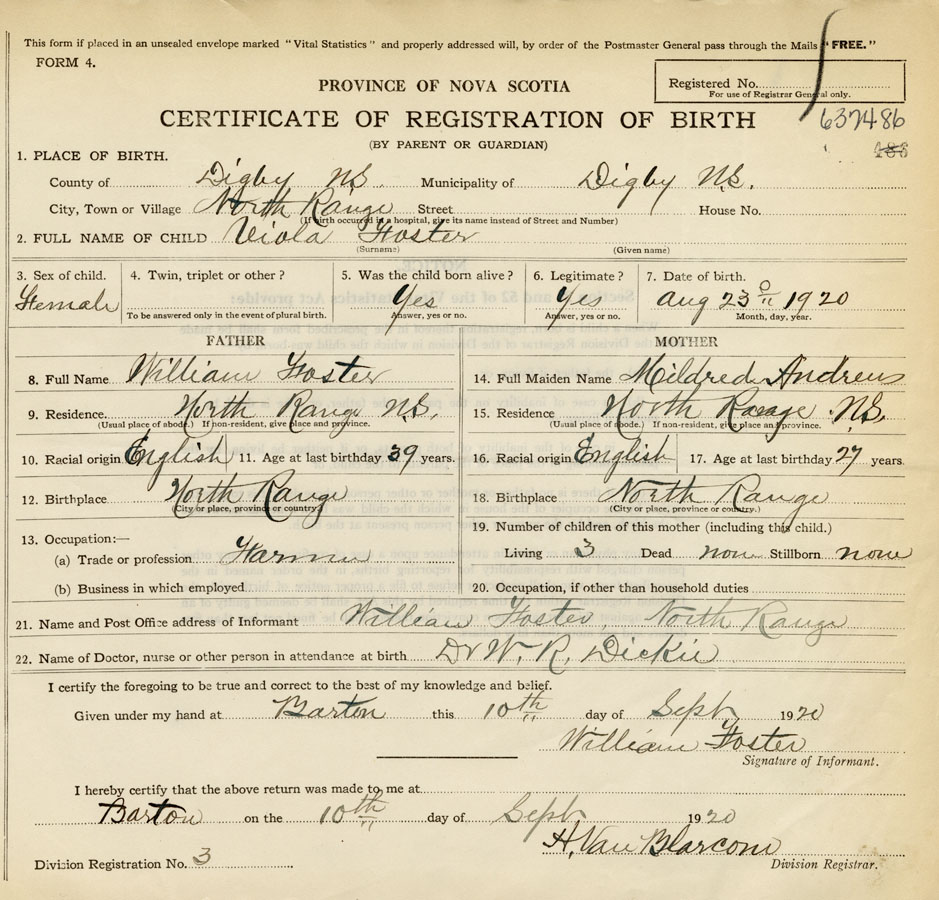 This form if placed in an unsealed envelope marked "Vital Statistics" and properly addressed will, by order of the Postmaster General pass through the Mails "FREE."
FORM 4.
Registered No.
For use of Registrar General only.
PROVINCE OF NOVA SCOTIA
CERTIFICATE OF REGISTRATION OF BIRTH
637486
(BY PARENT OR GUARDIAN)
1. PLACE OF BIRTH.
County of Digby N.S. Municipality of Digby N.S.
City, Town or Village North Range Street House No.
(If birth occurred in a hospital, give its name instead of Street and Number)
2. FULL NAME OF CHILD Viola Foster
(Surname) (Given name)
3. Sex of child. 4. Twin, triplet or other? 5. Was the child born alive? 6. Legitimate? 7. Date of birth.
Female Yes Yes Aug 23 1920
To be answered only in the event of plural birth. Answer, yes or no. Answer, yes or no. Month, day, year.
FATHER MOTHER
8. Full Name William Foster 14. Full Maiden Name Mildred Andrews
9. Residence. North Range N.S. 15. Residence North Range N.S.
(Usual place of abode.) If non-resident, give place and province. (Usual place of abode). If non-resident, give place and province.
10. Racial origin English 11. Age at last birthday 39 years. 16. Racial origin English 17. Age at last birthday 27 years.
12. Birthplace North Range 18. Birthplace North Range
(City or place, province or country.) (City or place, province or country.)
19. Number of children of this mother (including this child.)
13. Occupation:—
(a) Trade or profession Farmer Living 3 Dead none Stillborn none
(b) Business in which employed 20. Occupation, if other than household duties
21. Name and Post Office address of Informant William Foster, North Range
22. Name of Doctor, nurse or other person in attendance at birth Dr W. R. Dickie
I certify the foregoing to be true and correct to the best of my knowledge and belief.
Given under my hand at Barton this 10th day of Sept 1920
William Foster
Signature of Informant.
I hereby certify that the above return was made to me at
Barton on the 10th day of Sept 1920
H. Van Blarcom
Division Registration No. 3 Division Registrar.